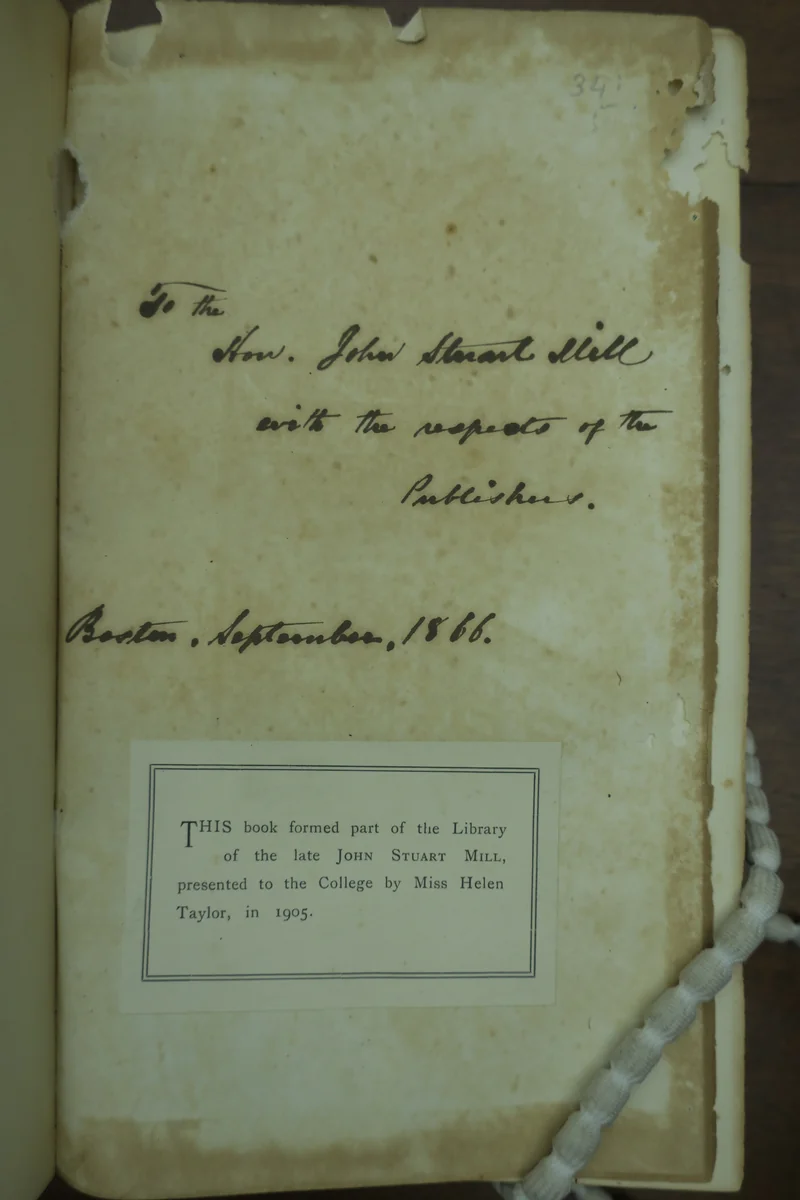 34
To the
Hon. John Stuart Mill
with the respects of the
Publishers.
Boston, September, 1866.
THIS book formed part of the Library
of the late JOHN STUART MILL,
presented to the College by Miss Helen
Taylor, in 1905.